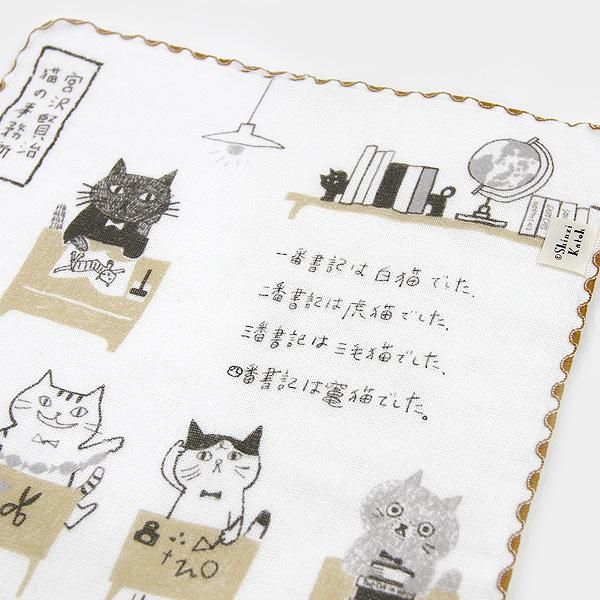 宮沢賢治
猫の事務所
一番書記は白猫でした、
二番書記は虎猫でした、
三番書記は三毛猫でした、
四番書記は竃猫でした。
©Shinzi
Katoh